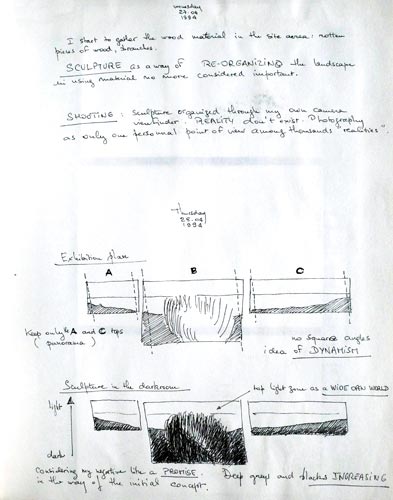 Wednesday
27.04
1994
I start to gather the wood material in the site aerea: rotten
pieces of wood, branches.
SCULPTURE as a way of RE-ORGANIZING the landscape
in using material no more considered important.
SHOOTING: sculpture organized through my own camera
viewfinder. REALITY don't exist. Photography
as only one personnal point of view among thousands "realities".
Thursday
28.04
1994
Exhibition place
A B C
Keep only the A and C tops
(panorama)
no square angles
idea of DYNAMISM
Sculpture in the darkroom
top light zone as a WIDE OWN WORLD
light
dark
Considering my negative like a PROMISE. Deep grays and blacks INCREASING
in the way of the initial concept.